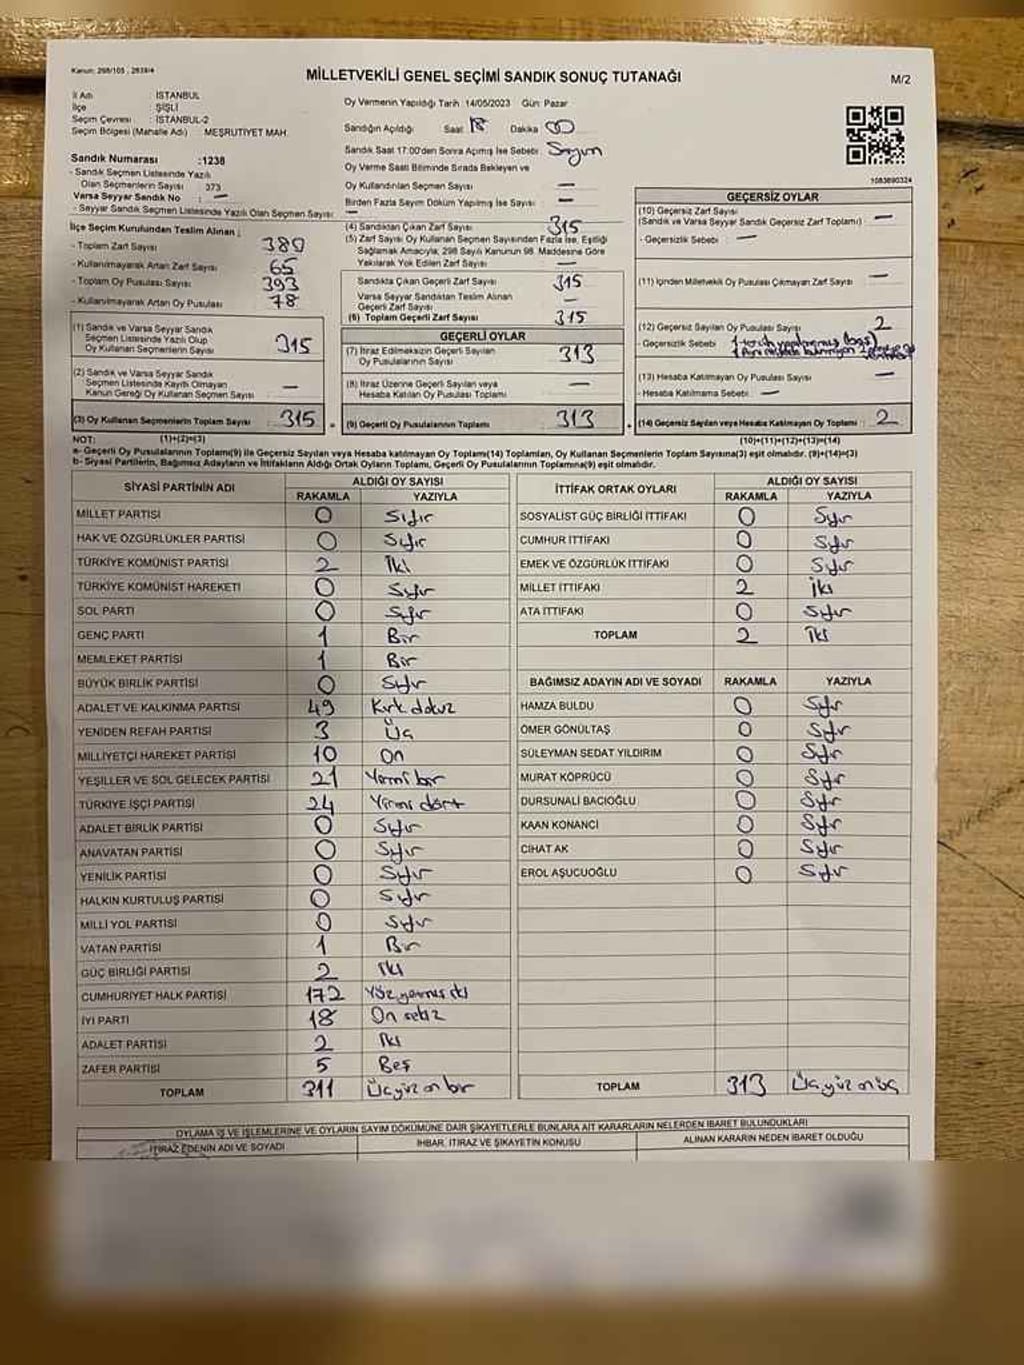 Kanun: 298/105 , 2839/4
MİLLETVEKİLİ GENEL SEÇİMİ SANDIK SONUÇ TUTANAĞI
M/2
İl Adı : İSTANBUL
İlçe : ŞİŞLİ
Seçim Çevresi : İSTANBUL-2
Seçim Bölgesi (Mahalle Adı) : MEŞRUTİYET MAH.
Sandık Numarası :1238
- Sandık Seçmen Listesinde Yazılı
Olan Seçmenlerin Sayısı : 373
Varsa Seyyar Sandık No : —
- Seyyar Sandık Seçmen Listesinde Yazılı Olan Seçmen Sayısı: —
İlçe Seçim Kurulundan Teslim Alınan ;
- Toplam Zarf Sayısı 380
- Kullanılmayarak Artan Zarf Sayısı 65
- Toplam Oy Pusulası Sayısı 393
- Kullanılmayarak Artan Oy Pusulası 78
(1) Sandık ve Varsa Seyyar Sandık
Seçmen Listesinde Yazılı Olup
Oy Kullanan Seçmenlerin Sayısı 315
(2) Sandık ve Varsa Seyyar Sandık
Seçmen Listesinde Kayıtlı Olmayan
Kanun Gereği Oy Kullanan Seçmen Sayısı —
(3) Oy Kullanan Seçmenlerin Toplam Sayısı 315
Oy Vermenin Yapıldığı Tarih: 14/05/2023 Gün: Pazar
Sandığın Açıldığı Saat 18 Dakika 00
Sandık Saat 17:00'den Sonra Açılmış İse Sebebi: Sayım
Oy Verme Saati Bitiminde Sırada Bekleyen ve
Oy Kullandırılan Seçmen Sayısı —
Birden Fazla Sayım Döküm Yapılmış İse Sayısı —
(4) Sandıktan Çıkan Zarf Sayısı 315
(5) Zarf Sayısı Oy Kullanan Seçmen Sayısından Fazla İse, Eşitliği
Sağlamak Amacıyla, 298 Sayılı Kanunun 98. Maddesine Göre
Yakılarak Yok Edilen Zarf Sayısı —
Sandıkta Çıkan Geçerli Zarf Sayısı 315
Varsa Seyyar Sandıktan Teslim Alınan
Geçerli Zarf Sayısı —
(6) Toplam Geçerli Zarf Sayısı 315
GEÇERLİ OYLAR
(7) İtiraz Edilmeksizin Geçerli Sayılan
Oy Pusulalarının Sayısı 313
(8) İtiraz Üzerine Geçerli Sayılan veya
Hesaba Katılan Oy Pusulası Toplamı —
(9) Geçerli Oy Pusulalarının Toplamı 313
1083890324
GEÇERSİZ OYLAR
(10) Geçersiz Zarf Sayısı
(Sandık ve Varsa Seyyar Sandık Geçersiz Zarf Toplamı) —
- Geçersizlik Sebebi : —
(11) İçinden Milletvekili Oy Pusulası Çıkmayan Zarf Sayısı —
(12) Geçersiz Sayılan Oy Pusulası Sayısı 2
- Geçersizlik Sebebi :
(13) Hesaba Katılmayan Oy Pusulası Sayısı —
- Hesaba Katılmama Sebebi : —
(14) Geçersiz Sayılan veya Hesaba Katılmayan Oy Toplamı 2
NOT: (1)+(2)=(3) (10)+(11)+(12)+(13)=(14)
a- Geçerli Oy Pusulalarının Toplamı(9) ile Geçersiz Sayılan veya Hesaba katılmayan Oy Toplamı(14) Toplamları, Oy Kullanan Seçmenlerin Toplam Sayısına(3) eşit olmalıdır. (9)+(14)=(3)
b- Siyasi Partilerin, Bağımsız Adayların ve İttifakların Aldığı Ortak Oyların Toplamı, Geçerli Oy Pusulalarının Toplamına(9) eşit olmalıdır.
SİYASİ PARTİNİN ADI ALDIĞI OY SAYISI
RAKAMLA YAZIYLA
MİLLET PARTİSİ 0 Sıfır
HAK VE ÖZGÜRLÜKLER PARTİSİ 0 Sıfır
TÜRKİYE KOMÜNİST PARTİSİ 2 İki
TÜRKİYE KOMÜNİST HAREKETİ 0 Sıfır
SOL PARTİ 0 Sıfır
GENÇ PARTİ 1 Bir
MEMLEKET PARTİSİ 1 Bir
BÜYÜK BİRLİK PARTİSİ 0 Sıfır
ADALET VE KALKINMA PARTİSİ 49 Kırk dokuz
YENİDEN REFAH PARTİSİ 3 Üç
MİLLİYETÇİ HAREKET PARTİSİ 10 On
YEŞİLLER VE SOL GELECEK PARTİSİ 21 Yirmi bir
TÜRKİYE İŞÇİ PARTİSİ 24 Yirmi dört
ADALET BİRLİK PARTİSİ 0 Sıfır
ANAVATAN PARTİSİ 0 Sıfır
YENİLİK PARTİSİ 0 Sıfır
HALKIN KURTULUŞ PARTİSİ 0 Sıfır
MİLLİ YOL PARTİSİ 0 Sıfır
VATAN PARTİSİ 1 Bir
GÜÇ BİRLİĞİ PARTİSİ 2 İki
CUMHURİYET HALK PARTİSİ 172 Yüz yetmiş iki
İYİ PARTİ 18 On sekiz
ADALET PARTİSİ 2 İki
ZAFER PARTİSİ 5 Beş
TOPLAM 311 Üçyüz on bir
İTTİFAK ORTAK OYLARI ALDIĞI OY SAYISI
RAKAMLA YAZIYLA
SOSYALİST GÜÇ BİRLİĞİ İTTİFAKI 0 Sıfır
CUMHUR İTTİFAKI 0 Sıfır
EMEK VE ÖZGÜRLÜK İTTİFAKI 0 Sıfır
MİLLET İTTİFAKI 2 İki
ATA İTTİFAKI 0 Sıfır
TOPLAM 2 İki
BAĞIMSIZ ADAYIN ADI VE SOYADI RAKAMLA YAZIYLA
HAMZA BULDU 0 Sıfır
ÖMER GÖNÜLTAŞ 0 Sıfır
SÜLEYMAN SEDAT YILDIRIM 0 Sıfır
MURAT KÖPRÜCÜ 0 Sıfır
DURSUNALİ BACIOĞLU 0 Sıfır
KAAN KONANCİ 0 Sıfır
CİHAT AK 0 Sıfır
EROL AŞUCUOĞLU 0 Sıfır
TOPLAM 313 Üçyüz on üç
OYLAMA İŞ VE İŞLEMLERİNE VE OYLARIN SAYIM DÖKÜMÜNE DAİR ŞİKAYETLERLE BUNLARA AİT KARARLARIN NELERDEN İBARET BULUNDUKLARI
İTİRAZ EDENİN ADI VE SOYADI İHBAR, İTİRAZ VE ŞİKAYETİN KONUSU ALINAN KARARIN NEDEN İBARET OLDUĞU